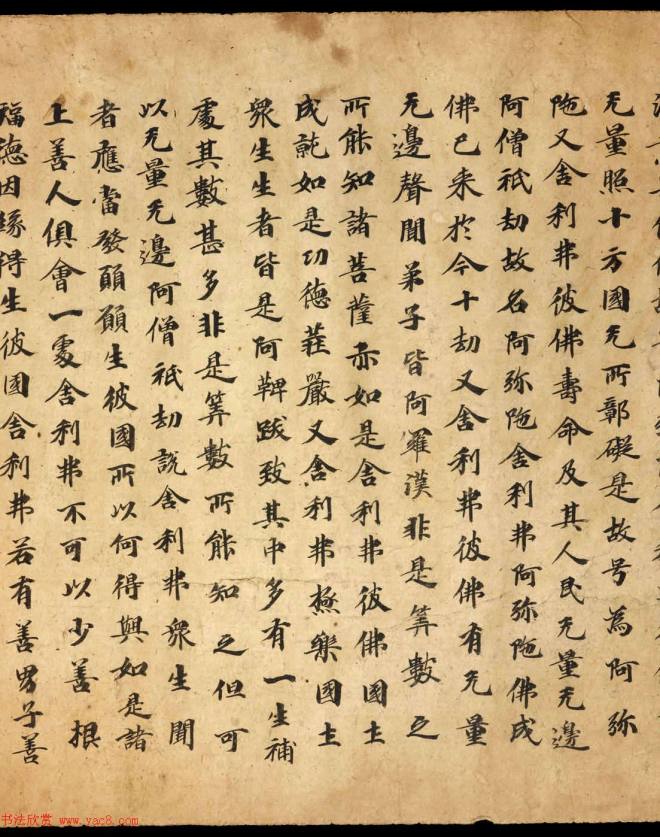 无量照十方國无所鄣礙是故号為阿弥
陁又舍利弗彼佛壽命及其人民无量无邊
阿僧祇劫故名阿弥陁舍利弗阿弥陁佛成
佛已来於今十劫又舍利弗彼佛有无量
无邊聲聞弟子皆阿羅漢非是筭數之
所能知諸菩薩亦如是舍利弗彼佛國土
成就如是功德莊嚴又舍利弗極樂國土
衆生生者皆是阿鞞跋致其中多有一生補
處其數甚多非是筭數所能知之但可
以无量无邊阿僧祇劫說舍利弗衆生聞
者應當發願願生彼國所以何得與如是諸
上善人俱會一處舍利弗不可以少善根
福德因緣得生彼國舍利弗若有善男子善
书法欣赏 www.yac8.com